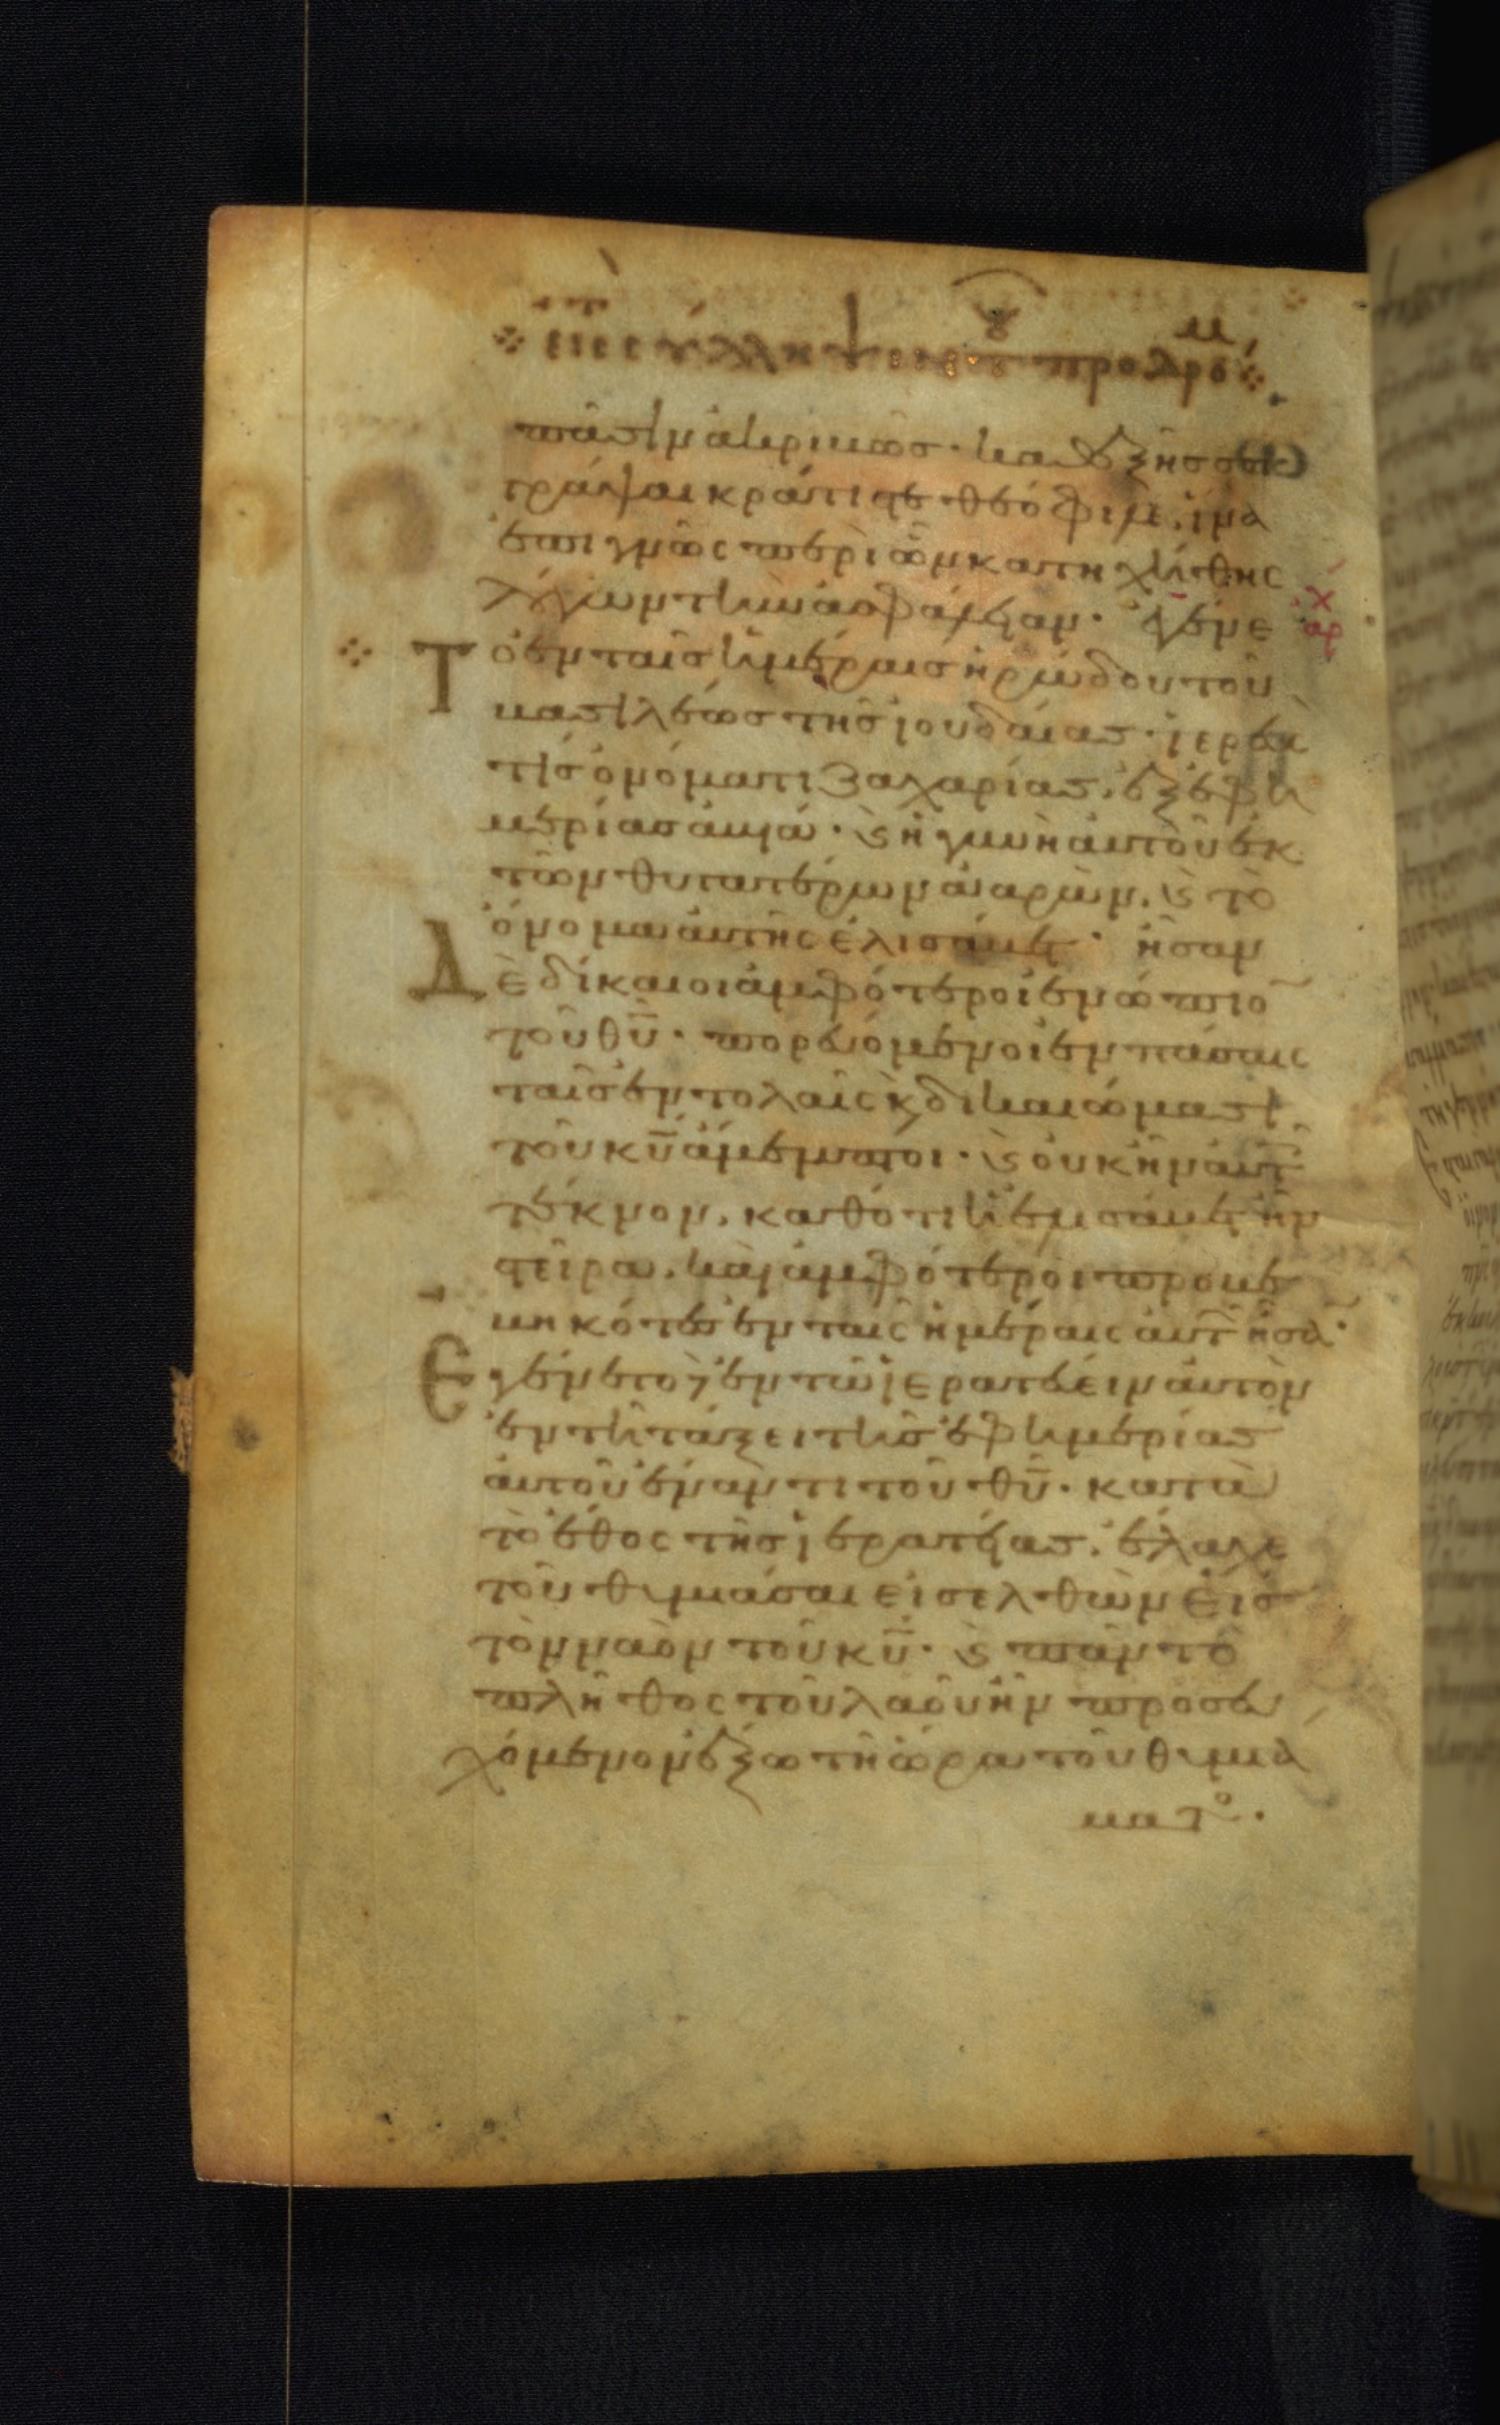 πᾶσιν ἀκριβῶς· καθεξῆς σοι
γράψαι κράτιστε θεόφιλε, ἵνα
ἐπιγνῶς περὶ ὧν κατηχήθης
λόγων τὴν ἀσφάλειαν· ἐγένε
χ
αρ
Τὸ ἐν ταῖς ἡμέραις ἡρώδου τοῦ
βασιλέως τῆς ἰουδαίας· ἱερεύ
τις ὀνόματι ζαχαρίας, ἐξ ἐφη
μερίας ἀβιά· κ ἡ γυνὴ αὐτοῦ ἐκ
τῶν θυγατέρων ἀαρών, κ τὸ
ὄνομα αὐτῆς ἐλισάβετ· ἦσαν
Δὲ δίκαιοι ἀμφότεροι ἐνώπιο
τοῦ θῡ· πορευόμενοι ἐν πάσαις
ταῖς ἐντολαῖς κ δικαιώμασι
τοῦ κῡ ἄμεμπτοι· κ οὐκ ἦν αὐτ
τέκνον, καθότι ἡ ἐλισάβετ ἦν
στεῖρα, καὶ ἀμφότεροι προβε
βηκότες ἐν ταῖς ἡμέραις αὐτ ἦσα·
Ἐγένετο ἐν τῶ ἱερατεύειν αὐτὸν
ἐν τῆ τάξει τῆς ἐφημερίας
αὐτοῦ ἔναντι τοῦ θῡ· κατὰ
τὸ ἔθος τῆς ἱερατείας, ἔλαχε
τοῦ θυμιάσαι εἰσελθὼν εἰς
τὸν ναὸν τοῦ κῡ· κ πᾶν τὸ
πλῆθος τοῦ λαοῦ ἦν προσευ
χόμενον ἔξω τῆ ὥρα τοῦ θυμιά
ματο·